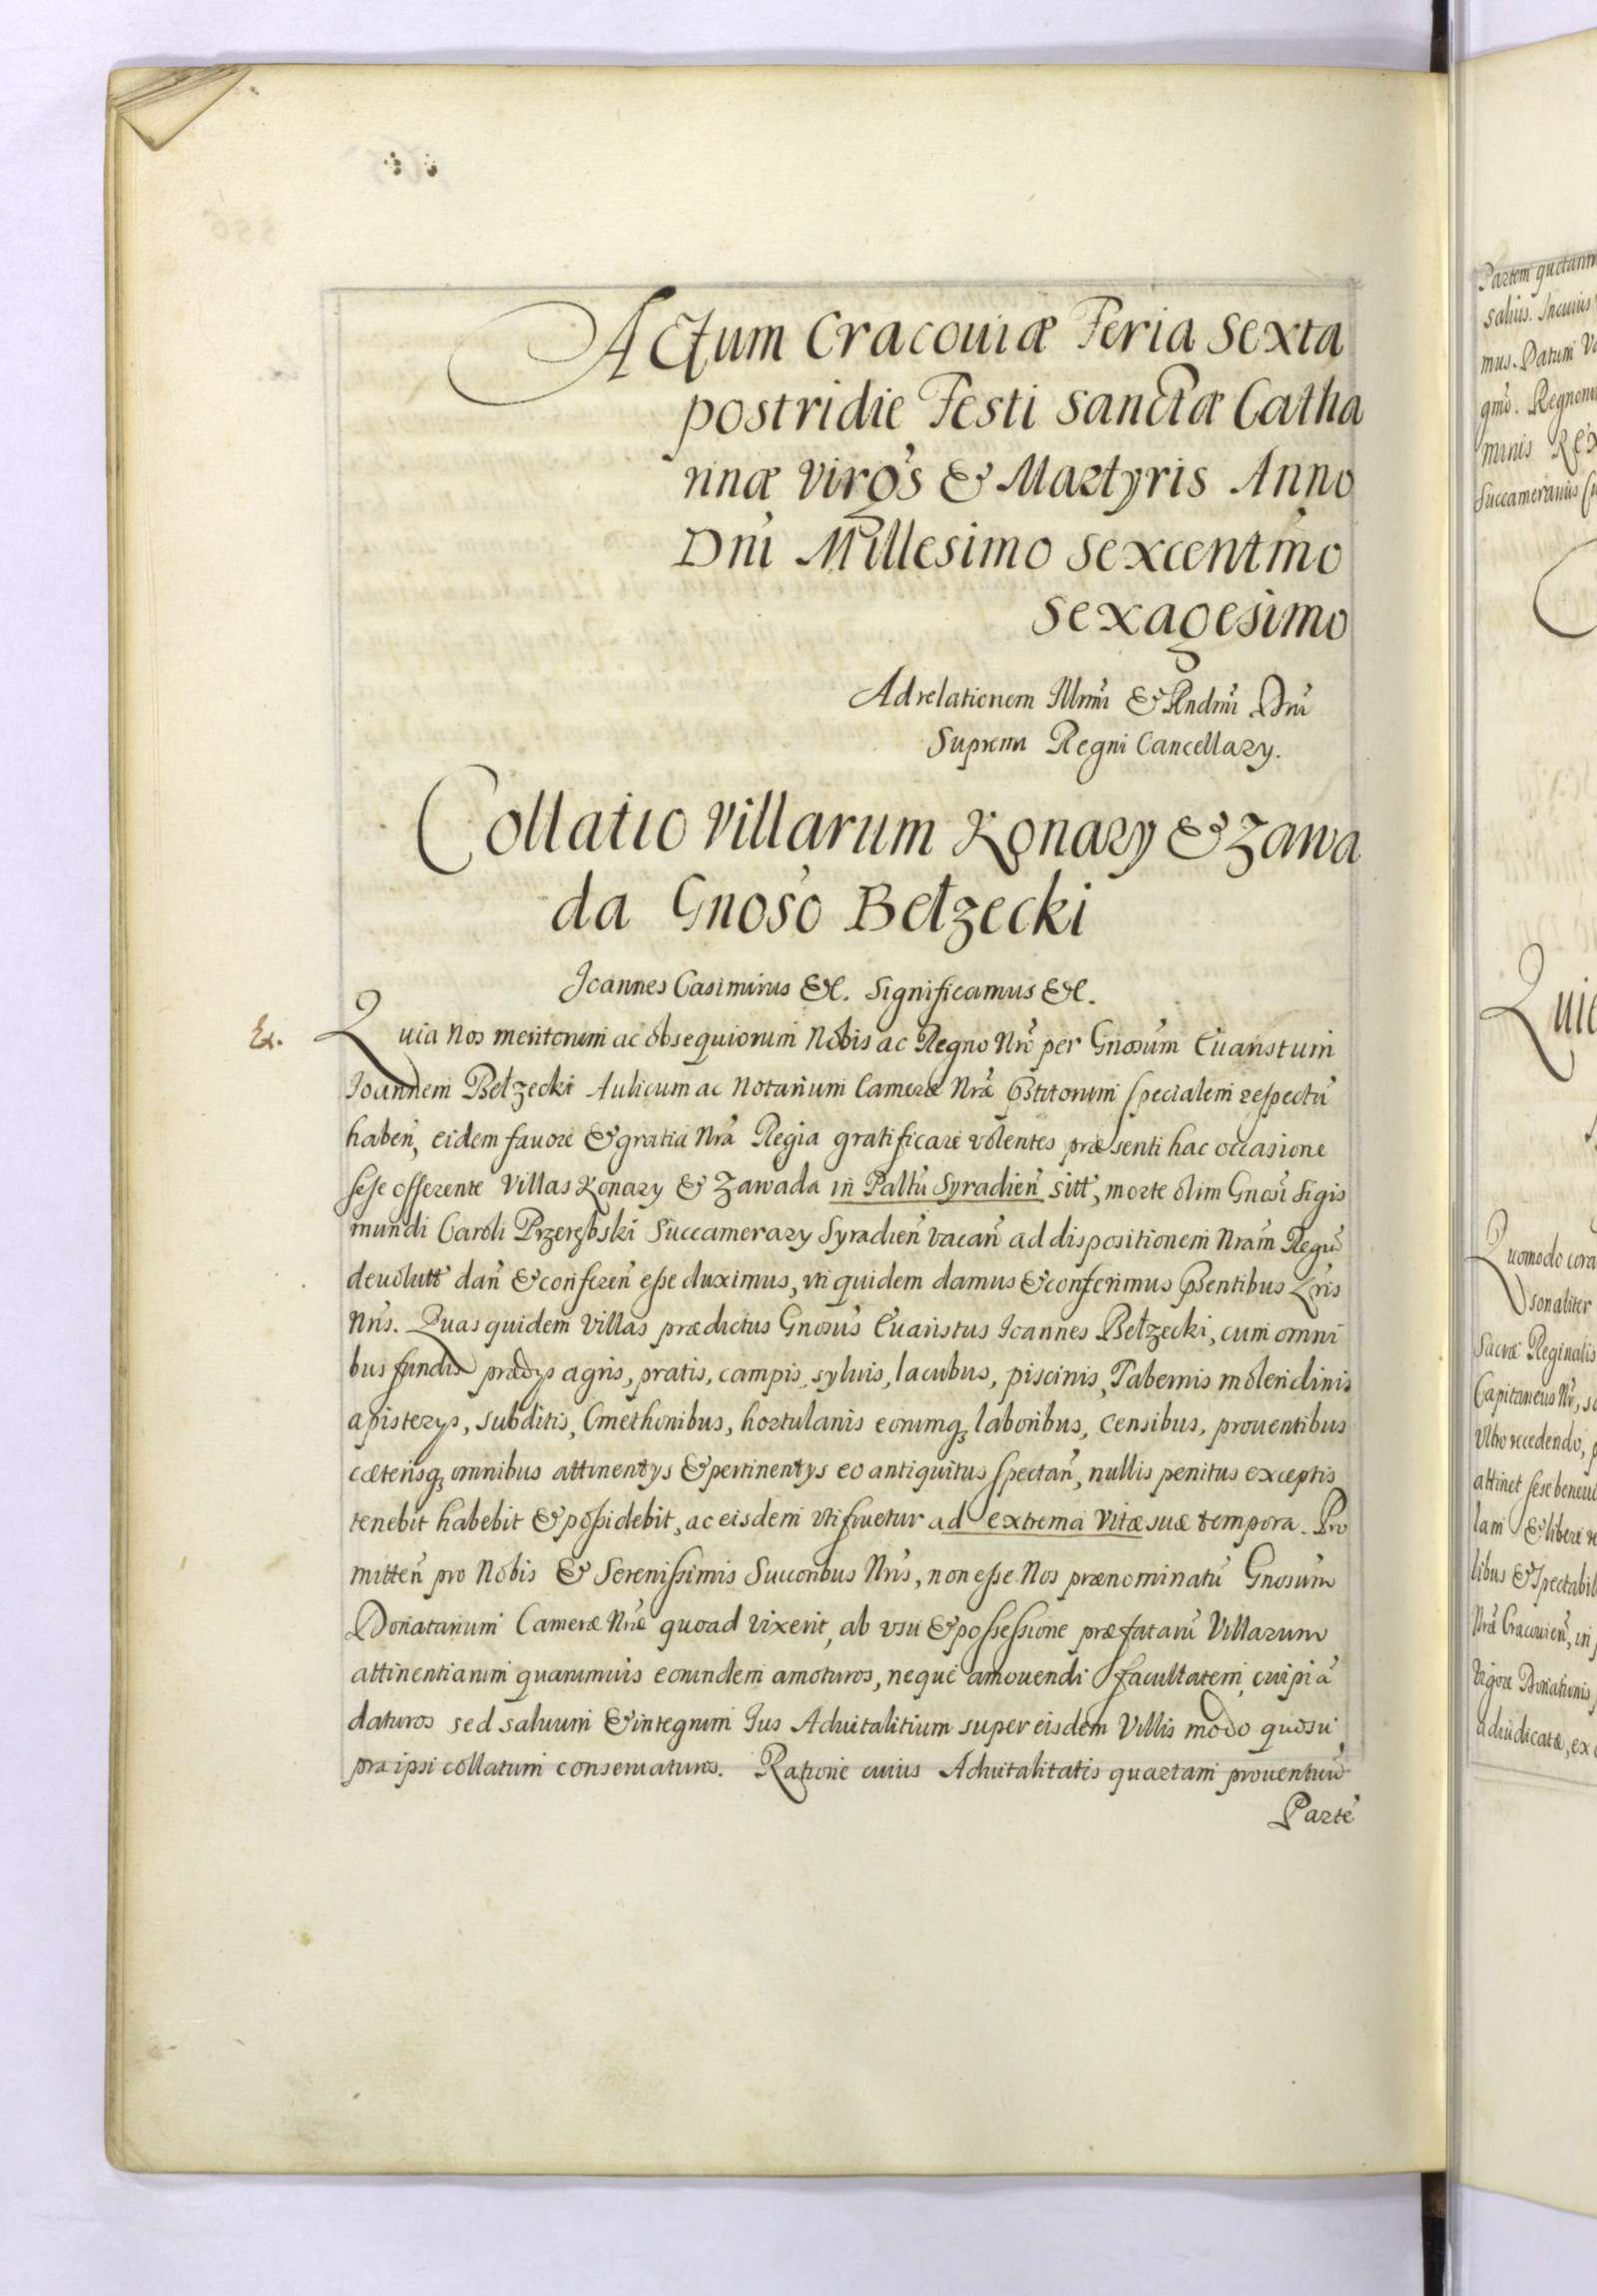 Actum Cracouiæ Feria Sexta
postridie Festi Sanctæ Catha
rinæ Virgs & Martyris Anno
Dni Millesimo Sexcentmo
Sexagesimo
Ad relationem Illmi & Rndmi Dni
Supremi Regni Cancellary.
Collatio Villarum Konary & Zawa
da Gnoso Bełzecki
Ioannes Casimirus &c. Significamus &c.
Ex.
Quia Nos meritorum ac obsequiorum Nobis ac Regno Nro per Gnosum Euaristum
Ioannem Bełzecki Aulicum ac Notarium Cameræ Nræ Pstitorum specialem respectu
haben, eidem fauore & gratia Nra Regia gratificare volentes præsenti hac occasione
sese offerente Villas Konary & Zawada in Paltu Syradien sitt, morte olim Gnosi Sigis
mundi Caroli Przerębski Succamerary Syradien vacan ad dispositionem Nram Regu
deuolutt dan & conferen esse duximus, vti quidem damus & conferimus Psentibus Lris
Nris. Quas quidem Villas prædictus Gnosus Euaristus Ioannes Bełzecki, cum omni
bus fundis prædys agris, pratis, campis, syluis, lacubus, piscinis, Tabernis molendinis
apisterys, subditis, Cmethonibus, hortulanis eorumq, laboribus, censibus, prouentibus
cæterisq, omnibus attinentys & pertinentys eo antiquitus spectan, nullis penitus exceptis
tenebit habebit & possidebit, ac eisdem vti fruetur ad extrema Vitæ suæ tempora. Pro
mitten pro Nobis & Serenissimis Succoribus Nris, non esse Nos prænominatu Gnosum
Donatarium Cameræ Nræ quoad vixerit, ab vsu & possessione præfataru Villarum
attinentiarum quarumuis earundem amoturos, neque amouendi facultatem cuipia
daturos sed saluum & integrum Ius Aduitalitium super eisdem Villis modo quo su
pra ipsi collatum conseruaturos. Ratione cuius Aduitalitatis quartam prouentuu
Parte
Partem quotann
saluis. In cuius
mus. Datum Va
gmo. Regnoru
minis REX
Succamerarius
Quie
Quomodo cora
sonaliter
Sacræ Reginalis
Capitaneus Nr, s
Vltro recedendo, p
attinet sese beneui
lam & libere re
libus & Spectabil
Nræ Cracouien, in
Vigore Donationis
adiudicatæ, ex